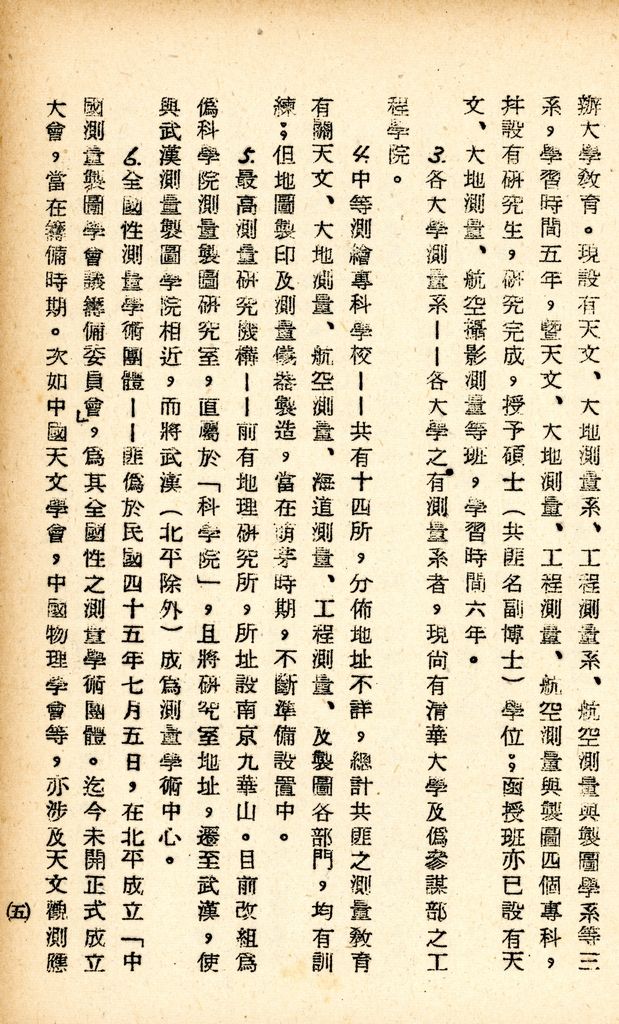 辦大學敎育。現設有天文、大地測量系、工程測量系、航空測量與製圖學系等三
系，學習時間五年，暨天文、大地測量、工程測量、航空測量與製圖四個專科，
并設有研究生，研究完成，授予碩士（共匪名副博士）學位；函授班亦已設有天
文、大地測量、航空攝影測量等班，學習時間六年。
3.各大學測量系——各大學之有測量系者，現尚有清華大學及僞參謀部之工
程學院。
4.中等測繪專科學校——共有十四所，分佈地址不詳，總計共匪之測量敎育
有關天文、大地測量、航空測量、海道測量、工程測量、及製圖各部門，均有訓
練；但地圖製印及測量儀器製造，當在萌芽時期，不斷準備設置中。
5.最高測量研究機構——前有地理研究所，所址設南京九華山。目前改組爲
僞科學院測量製圖研究室，直屬於「科學院」，且將研究室地址，遷至武漢，使
與武漢測量製圖學院相近，而將武漢（北平除外）成爲測量學術中心。
6.全國性測量學術團體——匪僞於民國四十五年七月五日，在北平成立「中
國測量製圖學會議籌備委員會」，爲其全國性之測量學術團體。迄今未開正式成立
大會，當在籌備時期。次如中國天文學會，中國物理學會等，亦涉及天文觀測應
㈤